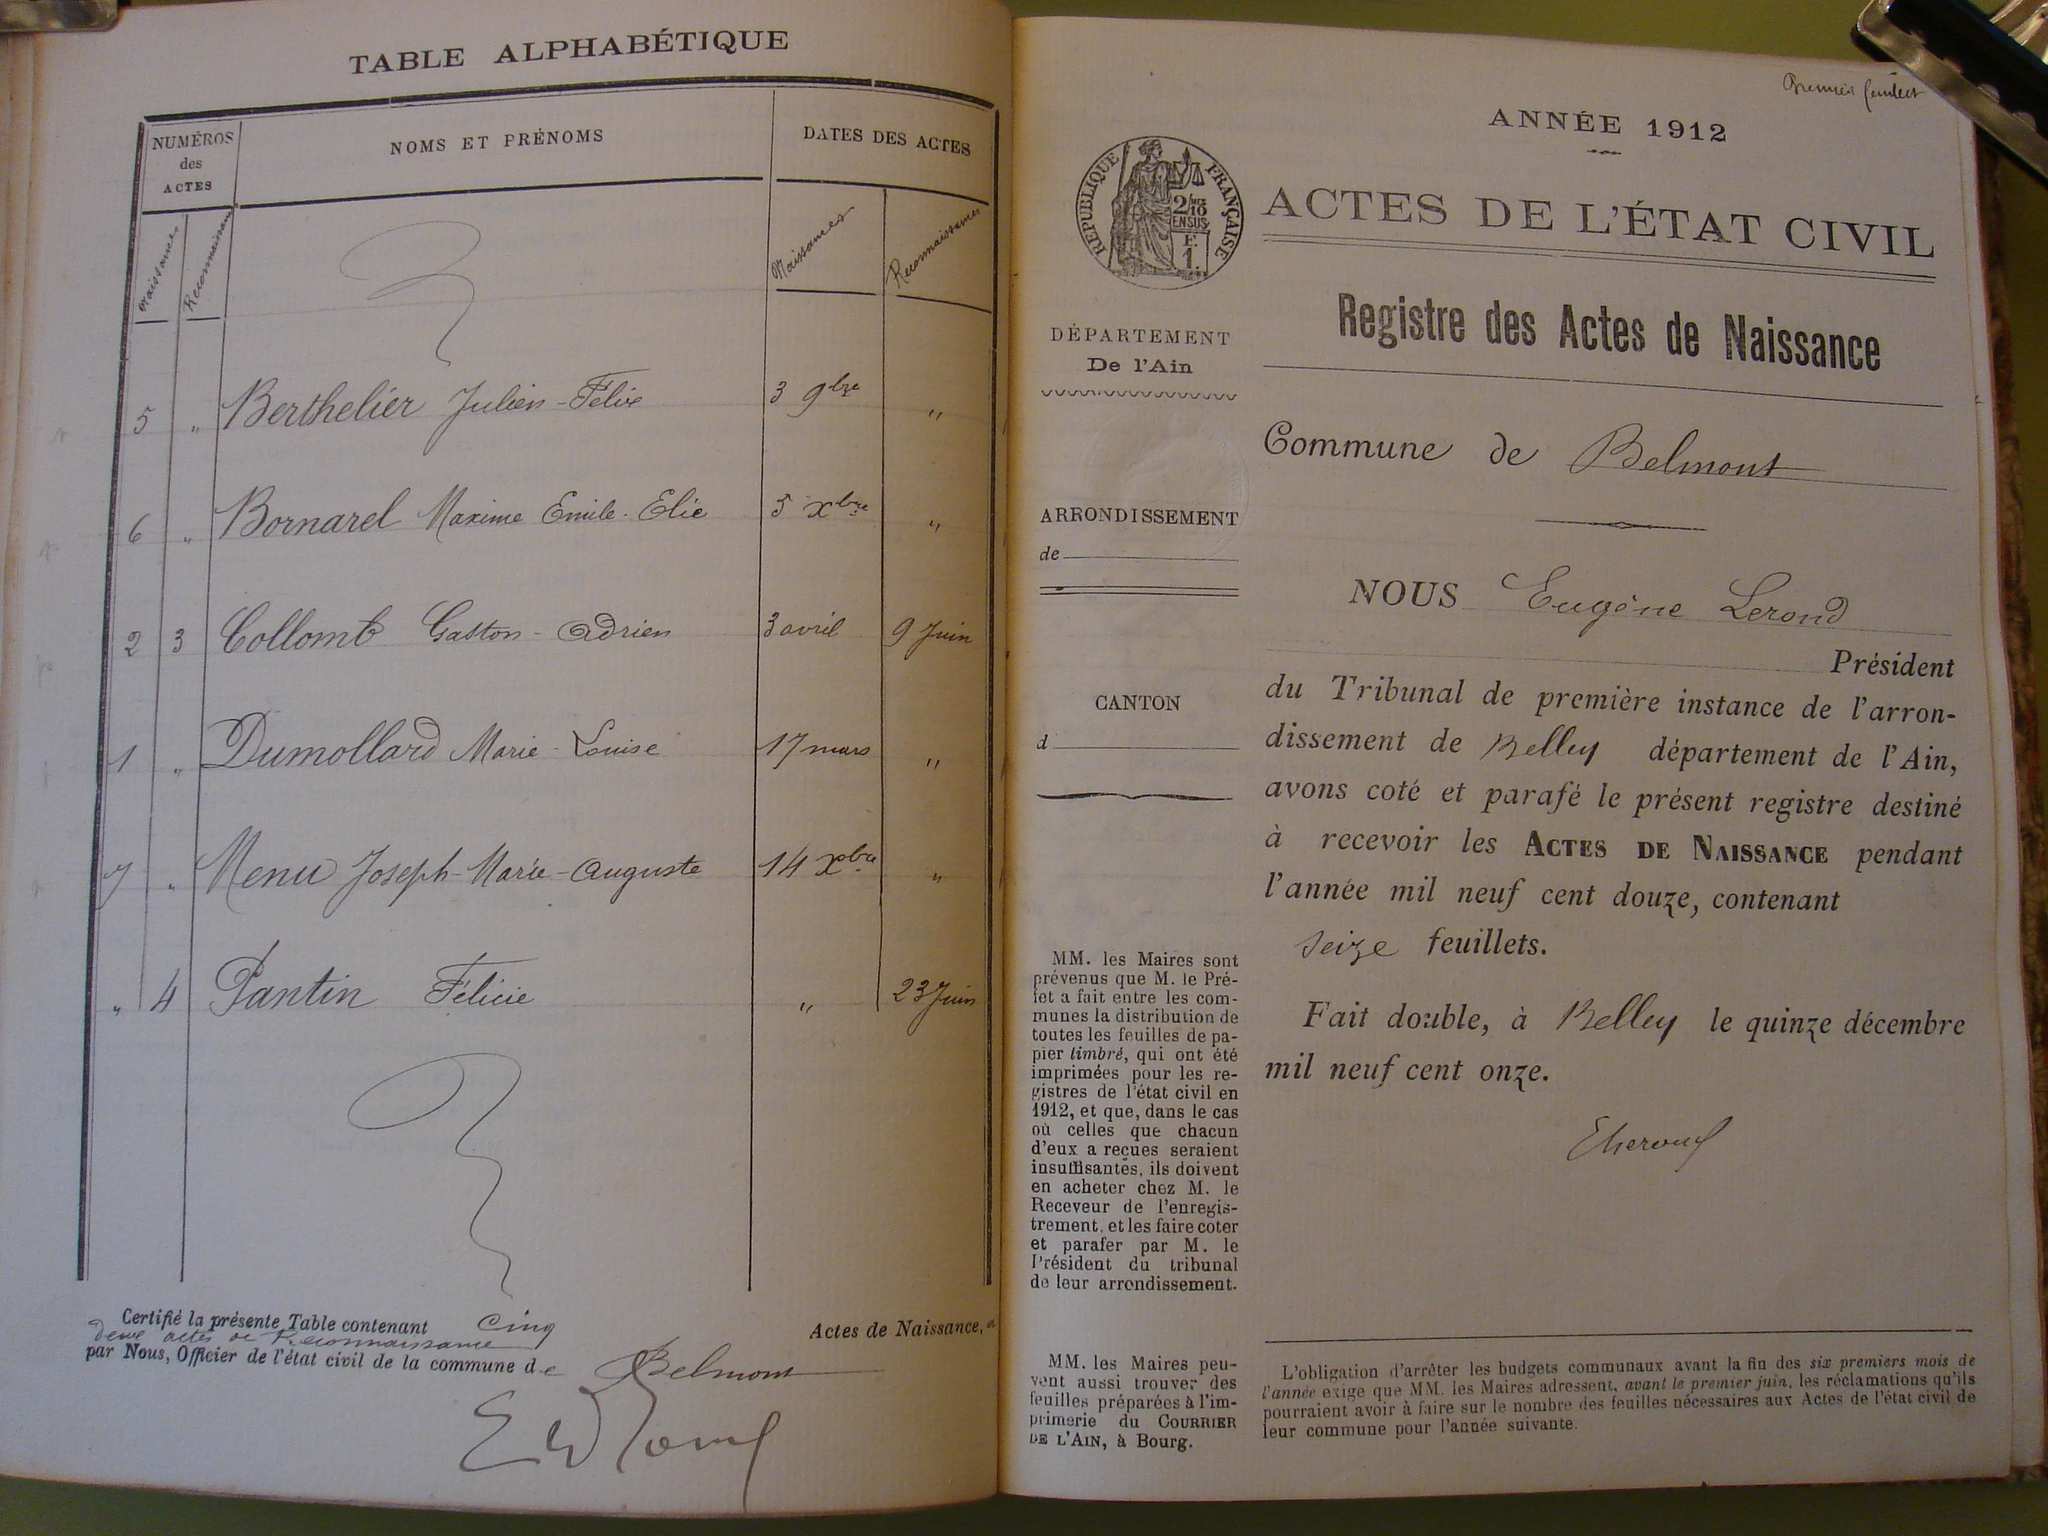 TABLE ALPHABÉTIQUE
NUMÉROS
des
ACTES
NOMS ET PRÉNOMS
DATES DES ACTES
Naissances
Reconnaissances
Naissances
Reconnaissances
5 " Berthelier Julien-Félix 3 9bre "
6 " Bornarel Maxime Emile-Elie 5 Xbre "
2 3 Collomb Gaston-Adrien 3 avril 9 Juin
1 " Dumollard Marie-Louise 17 mars "
7 " Menu Joseph-Marie-Auguste 14 Xbre "
" 4 Pantin Félicie " 23 Juin
Certifié la présente Table contenant cinq Actes de Naissance, et
deux actes de Reconnaissance
par Nous, Officier de l'état civil de la commune de Belmont
Premier feuillet
ANNÉE 1912
RÉPUBLIQUE FRANÇAISE
2/10
EN SUS
F.
1.
ACTES DE L'ÉTAT CIVIL
DÉPARTEMENT
De l'Ain
Registre des Actes de Naissance
Commune de Belmont
ARRONDISSEMENT
de
CANTON
d
NOUS Eugène Lerond
Président
du Tribunal de première instance de l'arron-
dissement de Belley département de l'Ain,
avons coté et parafé le présent registre destiné
à recevoir les ACTES DE NAISSANCE pendant
l'année mil neuf cent douze, contenant
seize feuillets.
Fait double, à Belley le quinze décembre
mil neuf cent onze.
MM. les Maires sont
prévenus que M. le Pré-
fet a fait entre les com-
munes la distribution de
toutes les feuilles de pa-
pier timbré, qui ont été
imprimées pour les re-
gistres de l'état civil en
1912, et que, dans le cas
où celles que chacun
d'eux a reçues seraient
insuffisantes, ils doivent
en acheter chez M. le
Receveur de l'enregis-
trement, et les faire coter
et parafer par M. le
Président du tribunal
de leur arrondissement.
MM. les Maires peu-
vent aussi trouver des
feuilles préparées à l'im-
primerie du COURRIER
DE L'AIN, à Bourg.
L'obligation d'arrêter les budgets communaux avant la fin des six premiers mois de
l'année exige que MM. les Maires adressent, avant le premier juin, les réclamations qu'ils
pourraient avoir à faire sur le nombre des feuilles nécessaires aux Actes de l'état civil de
leur commune pour l'année suivante.